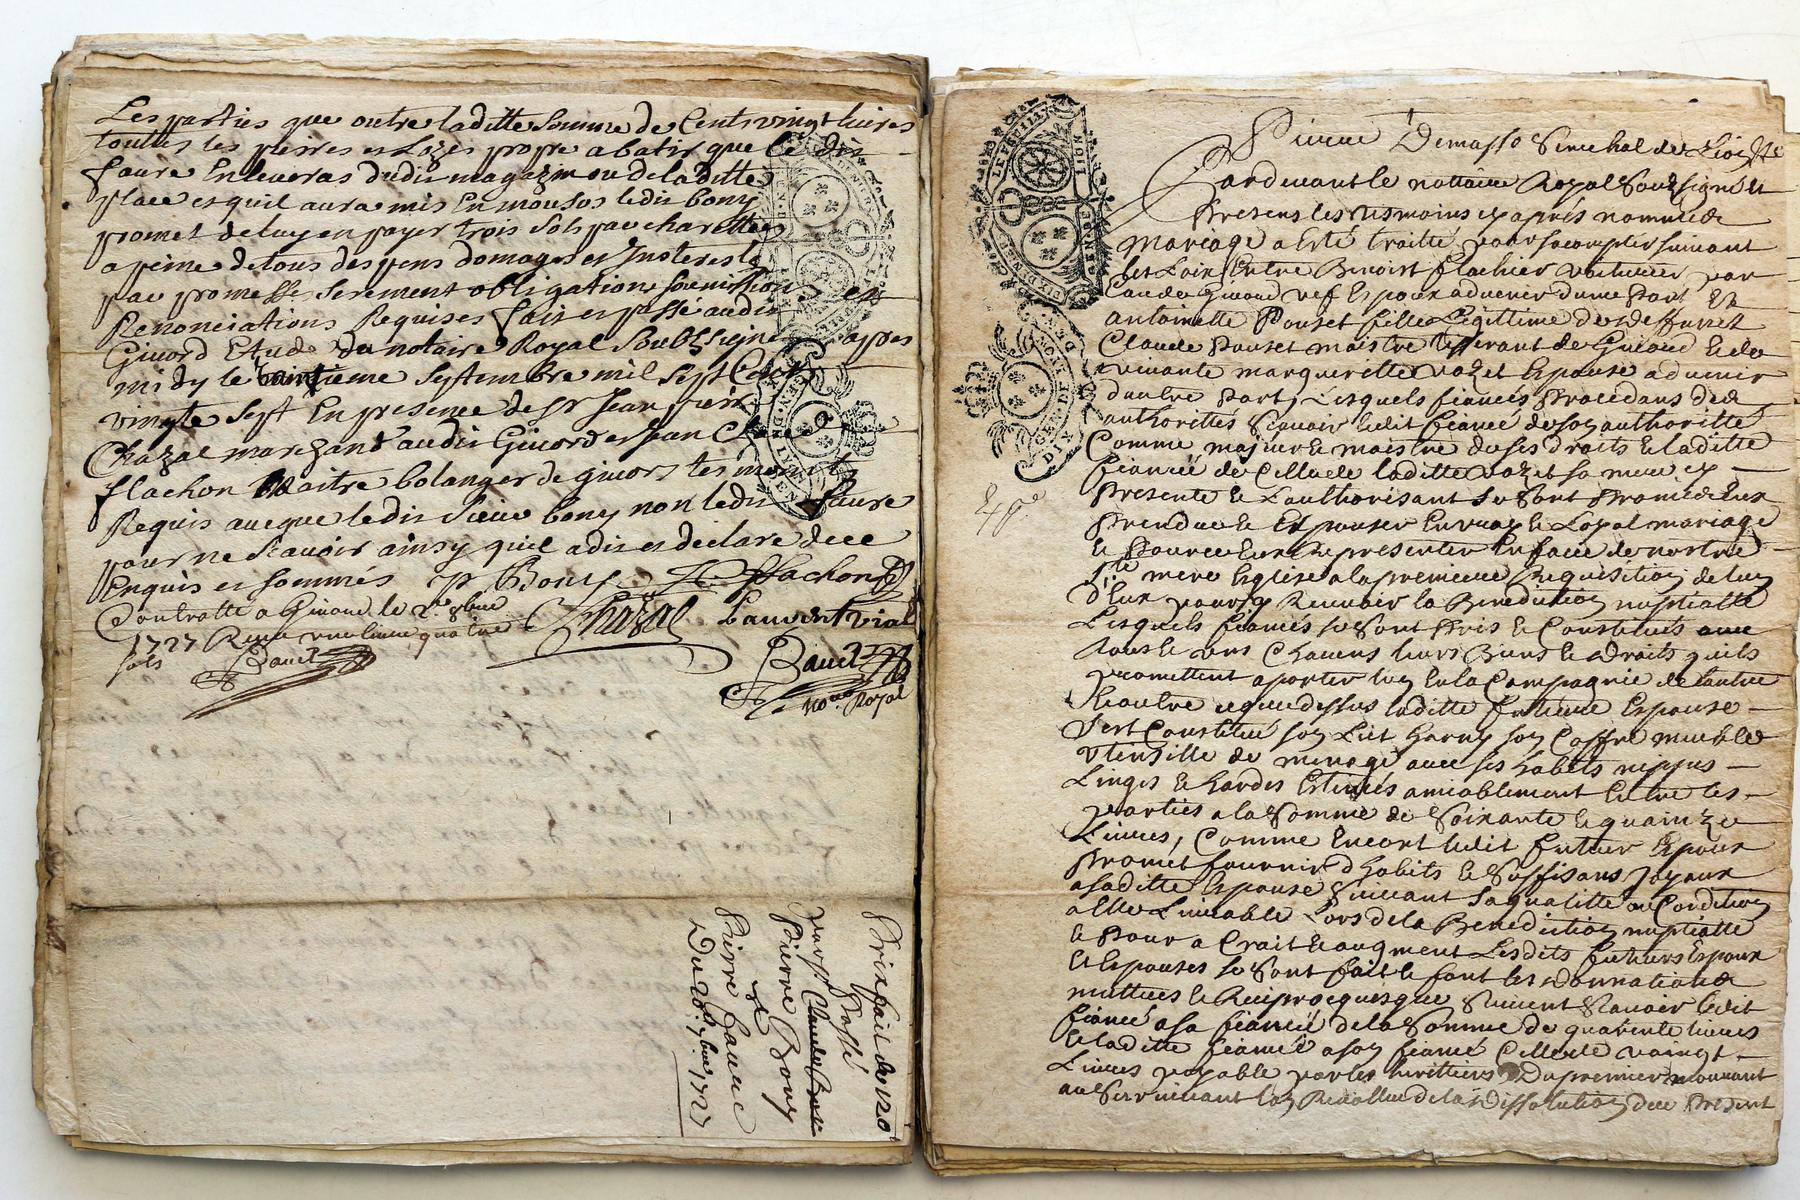 Les parties que outre laditte somme de Cent vingt livres
touttes les pierres et Lozes propre a batir que le dit
faure Enleveras dudit magazin ou de laditte
place et quil aura mis En mousos ledit bony
promet de luy en payer trois sols par charettes
a peine de tous despens domages et Interest
par promesses serement obligations soumissions et
Renonciations Requises fait et passé audit
Givord Etude du notaire Royal Soubssigné appres
midy le vintieme septembre mil sept Cent
vingte sept En presence de sr Jean pierre
Chazal marchand audit Givord et Jean
flachon Maitre bolanger de givors tesmoins
Requis avecque ledit Sieur bony non ledit faure
pour ne scavoir ainsy quil a dit et declare de ce
Enquis et sommés p Bony flachon
Controllé a Givord le 2e 8bre
Chazal Laurent vial
1727 Receu une livre quatre
sols Baud
Baud
nore Royal
Prisfait de 120
passé
par Claude
Pierre Bony
et
Pierre faure
Du 20e 7bre 1727
LEFEUILLE
LION
GEN.DE
DIX DENIERS
GEN.DE LION
DIX
Pierre Demasso Senechal de Lion
Pardevant le nottaire Royal Soubsigné et
Presens les tesmoins cy apres nommés
mariage a Esté traitté pour sacomplir suivant
les Loix Entre Benoist flachier voiturier par
Claude Givord vef Espoux advenir dune Part Et
antoinette Pouset fille Legittime de deffunct
Claude Pouset maistre tisserant de Givord & de
vivante margueritte vazet Espouse advenir
dautre Part, Lesquels fiancés Procedans des
authorittés scavoir ledit fiancé de son authoritté
Comme majeur & maistre de ses droits & laditte
fiancée de Celle de laditte vazet sa mere cy
Presente & Lauthorisant se sont Promis Eux
Prendre & Espouser En vray & Loyal mariage
& Pource Eux Representer En face de nostre
Ste mere Eglise a la premiere Requisition de lun
d'Eux pour y Recevoir la Benediction nuptialle
Lesquels fiancés se sont Pris & Constitués avec
tous & uns Chacuns leurs Biens & Droits quils
promettent aporter lun En la Compagnie de lautre
& outre ce que dessus laditte future Espouse
Sest Constitué son Lict Garny son Coffre meubles
Utensille de menage avec ses habits nippes
Linges & hardes Estimés amiablement Entre les
parties a la Somme de Soixante & quainze
Livres, Comme Encort ledit futur Espoux
Promet fournir d'habits & Suffisans Joyaux
a saditte Espouse Suivant sa qualitté & Condition
a Elle Livrable Lors de la Benediction nuptialle
& Pour acrait & augment Lesdits futurs Espoux
Et Espouses se sont fait & font les donnations
mutuers & Reciprocquesque suivent scavoir ledit
fiancé a sa fiancée de la Somme de quarante livres
& laditte fiancée a son fiancé Celle de vaingt
Livres payable par les heritiers Du premier mourant
au Survivant lors de la Dissolution du Present